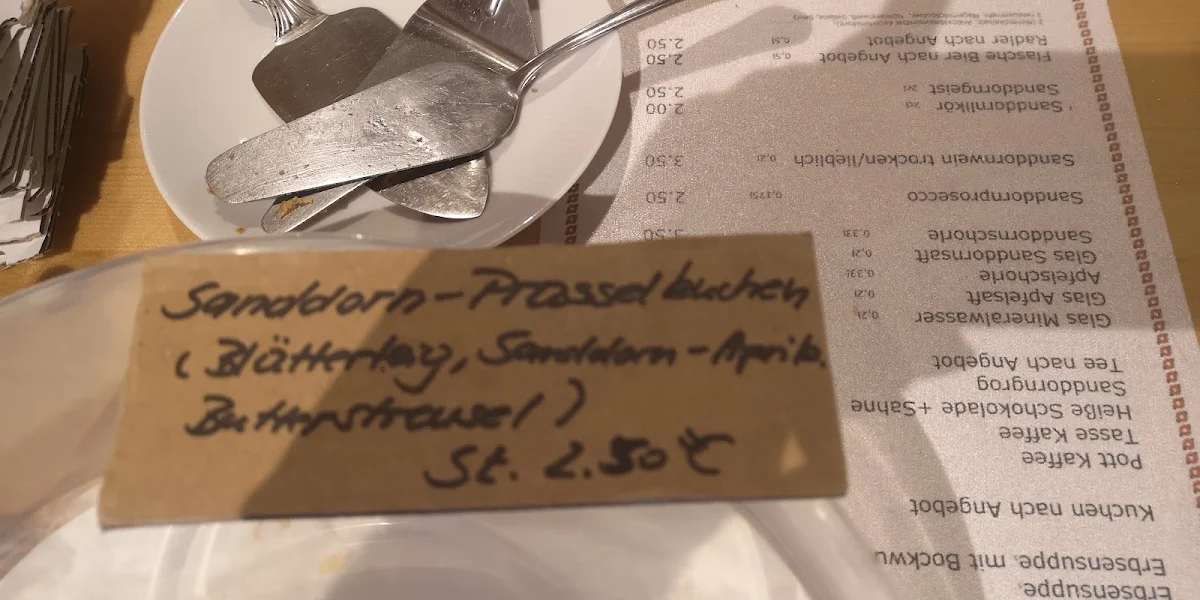 Sanddorn-Prasselkuchen
(Blätterteig, Sanddorn-Aprik.
Butterstreusel)
St. 2.50 €
Erbsensuppe.
Erbsensuppe. mit Bockwu
Kuchen nach Angebot
Pott Kaffee
Tasse Kaffee
Heiße Schokolade + Sahne
Sanddorngrog
Tee nach Angebot
Glas Mineralwasser 0,2l
Glas Apfelsaft 0,2l
Apfelschorle 0,33l
Glas Sanddornsaft 0,2l
Sanddornschorle 0,33l 3.50
Sanddornprosecco 0,175l 2.50
Sanddornwein trocken/lieblich 0,2l 3.50
Sanddornlikör 2cl 2.00
Sanddorngeist 2cl 2.50
Flasche Bier nach Angebot 0,5l 2.50
Radler nach Angebot 0,5l 2.50